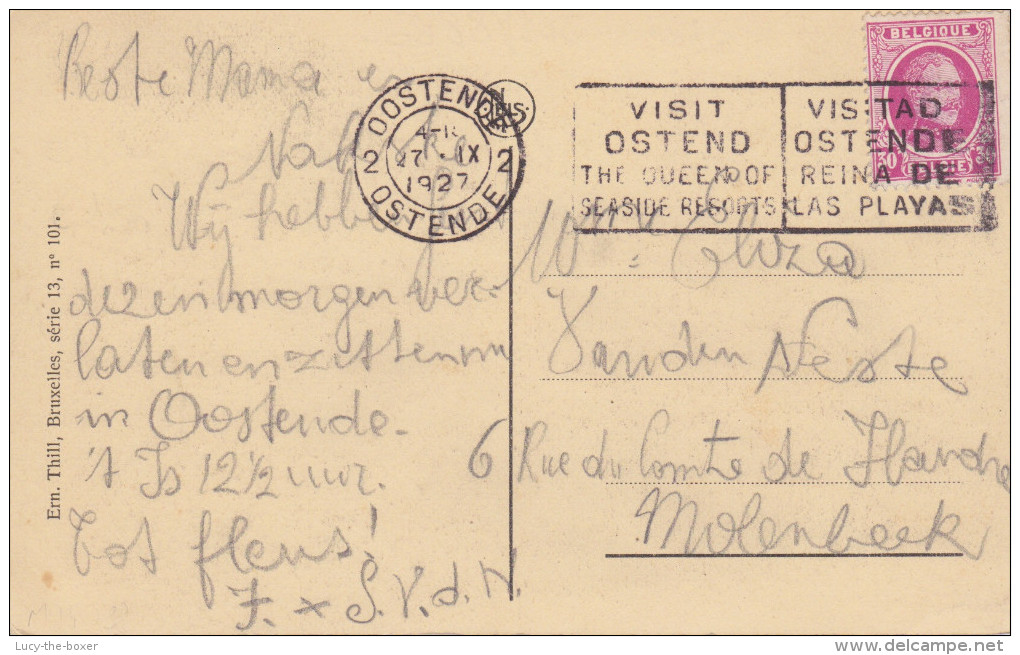 Beste Mama en
Wij hebben
dezen morgen ver-
laten en zitten nu
in Oostende.
't Is 12 ½ uur.
Tot flens!
F. x S. V. d. N.
Ern. Thill, Bruxelles, série 13, nº 101.
OOSTENDE
2 27 · IX 2
1927
OSTENDE
VISIT
OSTEND
THE QUEEN OF
SEASIDE RESORTS
VISITAD
OSTENDE
REINA DE
LAS PLAYAS
BELGIQUE
30
BELGIE
Eliza
Vanden Neste
6 Rue du Comte de Flandre
Molenbeek
Lucy-the-boxer
delcampe.net